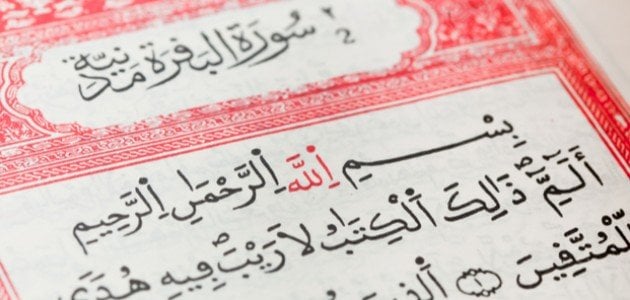 ٢ 2 سُورَةُ البَقَرَة مَدَنِيَّة
بِسْمِ اِ۬للَّهِ اِ۬لرَّحْمَٰنِ اِ۬لرَّحِيمِ
أَلَٓمِّٓۖ ذَٰلِكَ اَ۬لْكِتَٰبُ لَا رَيْبَۖ فِيهِ هُدىً
لِّلْمُتَّقِينَ ١